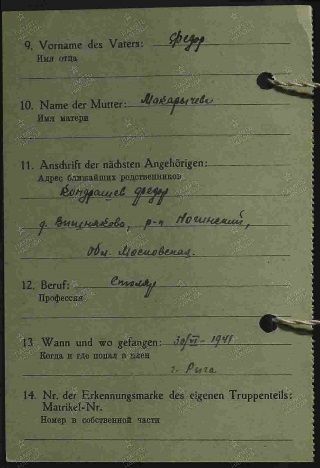 9. Vorname des Vaters: Федор
Имя отца
10. Name der Mutter: Макарычева
Имя матери
11. Anschrift der nächsten Angehörigen:
Адрес ближайших родственников
Кондрашев Федор
д. Вишняково, р-н Ногинский,
Обл. Московская.
12. Beruf: Столяр
Профессия
13 Wann und wo gefangen: 30/VI - 1941
Когда и где попал в плен
г. Рига
14. Nr. der Erkennungsmarke des eigenen Truppenteils:
Matrikel-Nr.
Номер в собственной части